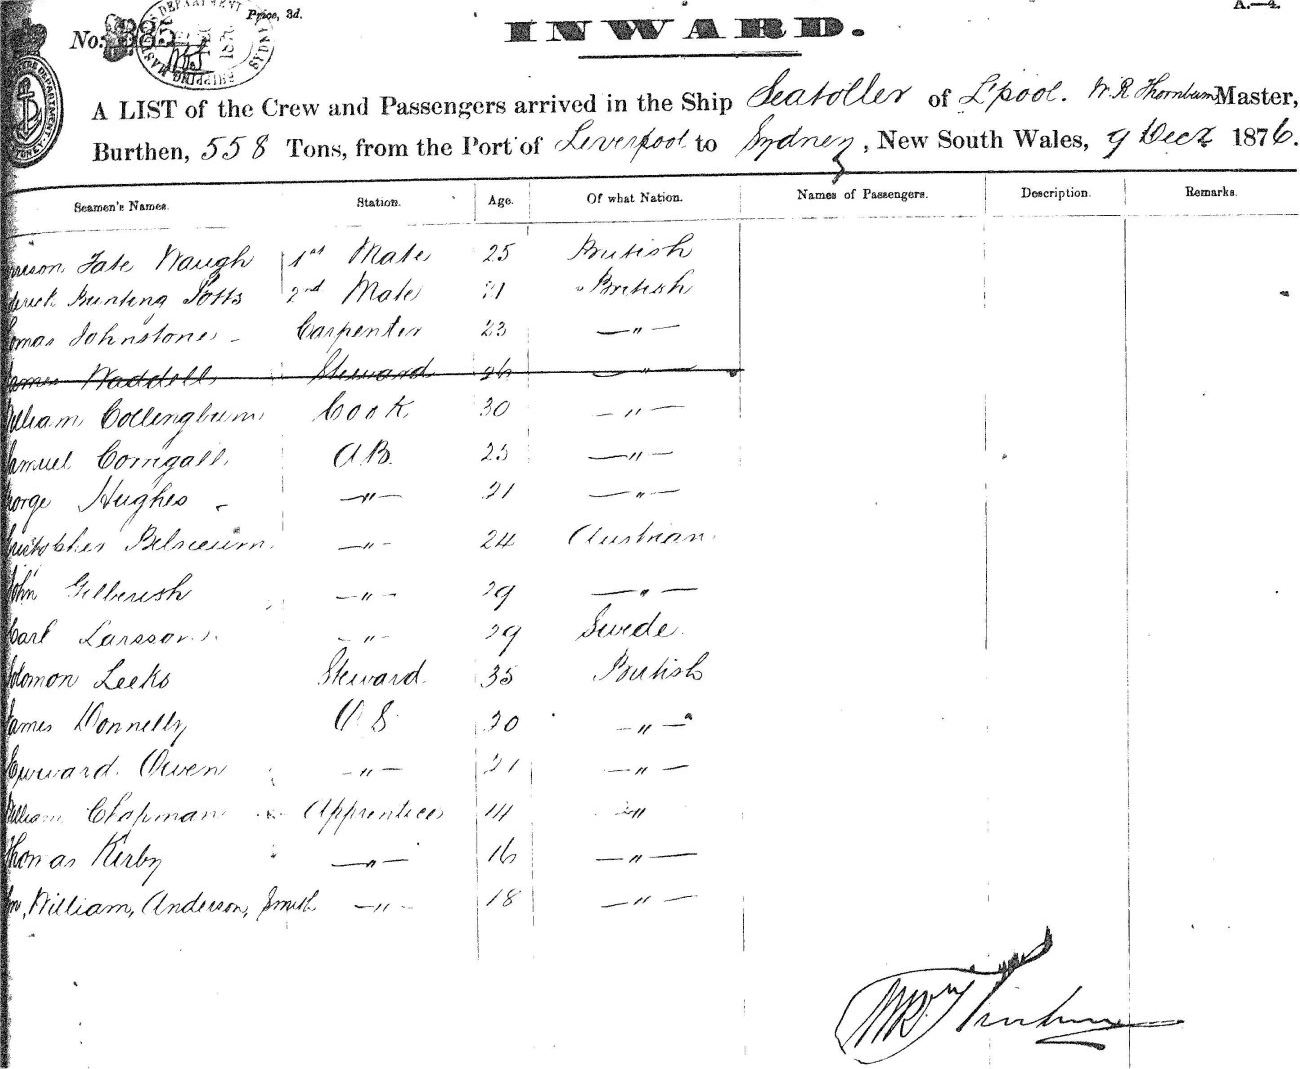 Price, 3d.
A.—4.
No.
INWARD.
A LIST of the Crew and Passengers arrived in the Ship Seatoller of L'pool. W. R. Thornburn Master,
Burthen, 558 Tons, from the Port of Liverpool to Sydney, New South Wales, 9 Decr 1876.
Seamen's Names. Station. Age. Of what Nation. Names of Passengers. Description. Remarks.
Tate Waugh 1st Mate 25 British
Bunting Potts 2nd Mate 21 British
omas Johnstone Carpenter 23 — " —
James Waddell Steward 26 — " —
William Collingburn Cook 30 — " —
Samuel Corngall AB. 25 — " —
George Hughes — " — 21 — " —
24 Austrian
John — " — 29 — " —
Carl Larsson — " — 29 Swede
Solomon Leeks Steward 35 British
James Donnelly OS 20 — " —
Edward Owen — " — 21 — " —
William Chapman Apprentice 14 "
Thomas Kirby — " — 16 — " —
William, Anderson, Smith — " — 18 — " —